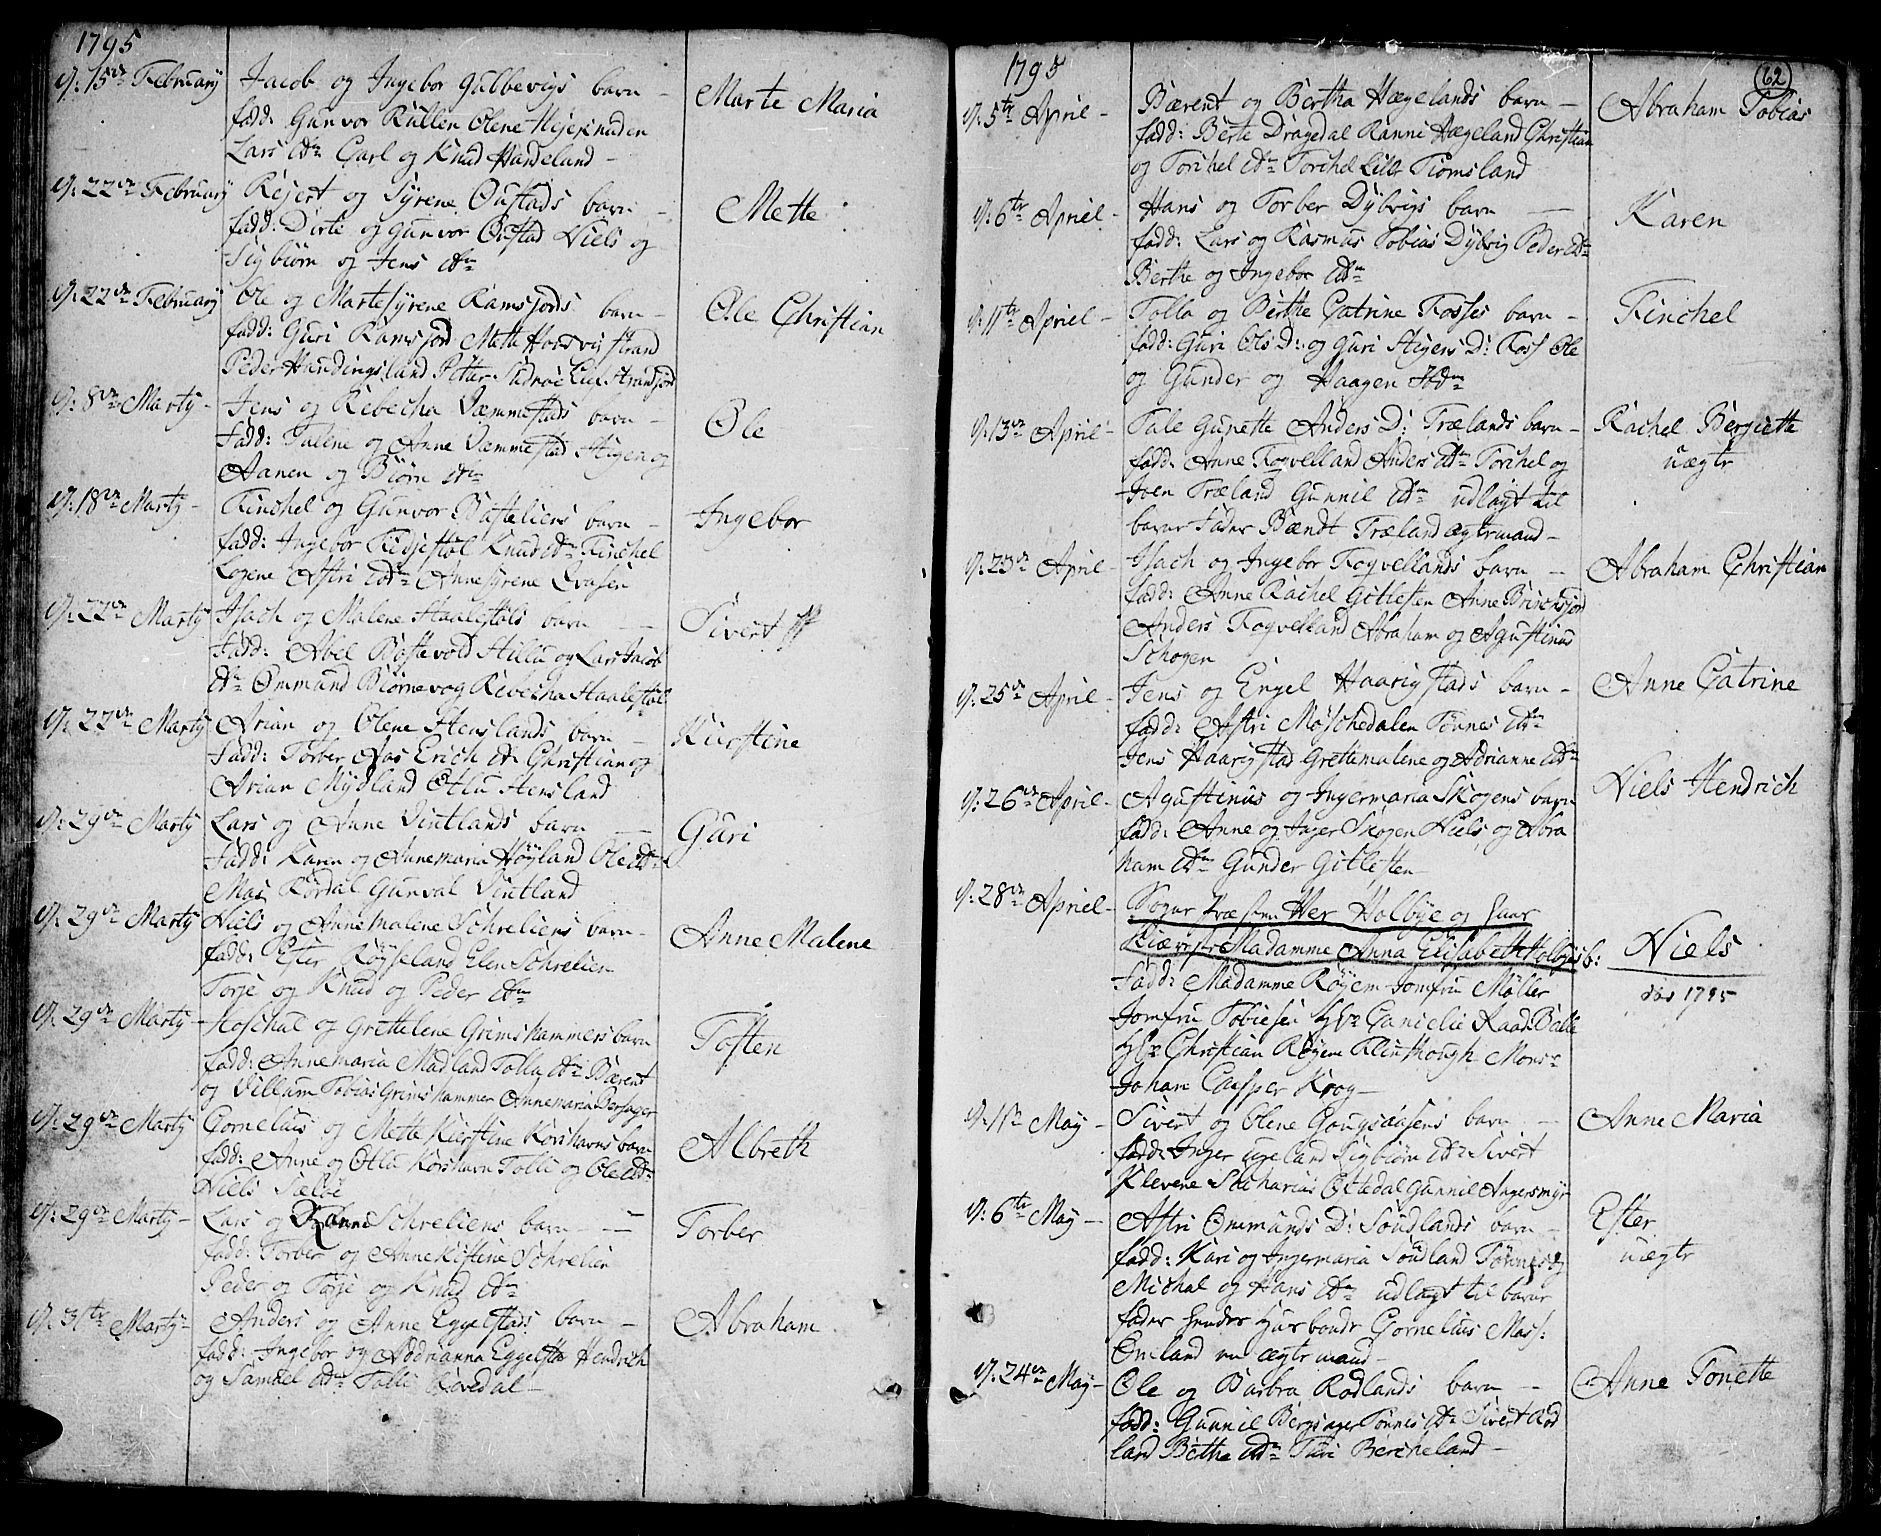 1795
d: 15de February
Jacob og Ingebor Gulbevigs barn -
Marte Maria
fadd: Gunvor Olene
Lars ibm Carl og Knud Handeland -
d: 22de February
Rejert og Syrene Oustads barn -
Mette
fadd: Dirte og Gunvor Oustad Niels og
Sigbiörn og Jens ibm
d: 22de February
Ole og Martesyrene Ramsjords barn -
Ole Christian
fadd: Guri Ramsjord Mette strand
Peder Haudingsland Petter
d: 8de Marty -
Jens og Rebecha Væmmestads barn -
Ole
fadd: Talene og Anne Væmmestad Stigen og
Aanen og Biörn ibm
d: 18de Marty -
Tinchel og Gunvor barn -
Ingebor
fadd: Ingebor Knud ibm Tinchel
Logene Astri ibm Annesyrene
d: 22de Marty
Isach og Malene Haalestöls barn -
Sivert
fadd: Abel og Lars Jacob
ibm Ommund Biörnevog Rebecha Haalestöl
d: 22de Marty
Arian og Olene Henslands barn -
Kirstine
fadd: Torber Aas Erich ibm Christian og
Arian Mydland Otlu Hensland
d: 29de Marty
Lars og Anne Vintlands barn
Guri
fadd: Karen og Annemaria Höyland Ole ibm
Mas Rördal Gunval Vintland
d: 29de Marty
Niels og Annemalene Schreliens barn -
Anne Malene
fadd: Ester Röyseland Elen Schrelien
Torje og Knud og Peder ibm
d: 29de Marty -
og Grettelene Grimshammers barn
Tosten
fadd: Annemaria Madland Tolla ibm Bærent
og Villum Tobias Grimshammer Annemaria Bersager
d: 29de Marty
Cornelius og Mette Kirstine Korshavns barn
Albreth
fadd: Anne og Otlu Korshavn Tolli og Ole ibm
Niels Sæløe
d: 29de Marty -
Lars og Ranni Schreliens barn -
Torber
fadd: Torber og Anne Kistine Schrelien
Peder og Torje og Knud ibm
d: 31te Marty -
Anders og Anne Eggelstads barn -
Abraham
fadd: Ingebor og Addrianna Eggelsta Hendrich
og Samuel ibm Tolli Rövedal -
1795
62
d: 5te April -
Bærent og Bertha Hægelands barn -
Abraham Tobias
fadd: Berte Dragedal Ranni Hægeland Christian
og Torchel ibm Torchel Lille Tiomsland
d: 6te Apriel -
Hans og Torber Dybvigs barn -
Karen
fadd: Lars og Rasmus Tobias Dybvig Peder ibm
Berthe og Ingebor ibm
d: 11te Apriel -
Tolla og Berthe Catrine Fosses barn -
Tinchel
fadd: Guri Ols D: og Guri Stigers D: Foss Ole
og Gunder og Haagen ibm
d: 13de April -
Tale Gunette Anders D: Trælands barn -
Rachel Bergiette
uægte
fadd: Anne Fogvelland Anders ibm Torchel og
Joen Træland Gunnil ibm udlagt til
barne fader Bændt Træland ægtemand -
d: 23de April -
Isach og Ingebor Fogvellands barn -
Abraham Christian
fadd: Anne Rachel Gitlesten Anne
Anders Fogvelland Abraham og Agustinus
Schogen
d: 25de April -
Jens og Engel Haarigstads barn -
Anne Catrine
fadd: Astri Möschedalen Tönnes ibm
Jens Haarigstad Grettemalene og Adrianne ibm
d: 26de April -
Agustinus og Ingermaria Skogens barn
Niels Hendrich
fadd: Anne og Inger Skogen Niels og Abra
ham ibm Gunder Gitlesten
d: 28de Apriel -
Sogne Præsten Her Holbye og Haar
Kiæreste Madamme Anna Elisabeth Holbyes b:
Niels
död 1795
fadd: Madamme Röyem Jomfru Möller
Jomfru Tobiesen Hr Raad
Hr Christian Röyem Mons:
Johan Casper Krog -
d: 1te May -
Sivert og Olene barn -
Anne Maria
fadd: Inger Sigbiörn ibm Sivert
Klevene Sacharias Oftedal Gunnil Angersmyr
d: 6te May -
Astri Ommunds D: Soudlands barn -
Ester
uægte
fadd: Kari og Ingermaria Soudland Tönnes og
Michal og Hans ibm udlagt til barne
fader hendes Husbonde Cornelius
en ægte mand -
d: 24de May -
Ole og Barbra Rödlands barn -
Anne Tonette
fadd: Gunnil Bergsager Tönnes ibm Sivert Röd
land Betha ibm Turi Bercheland -